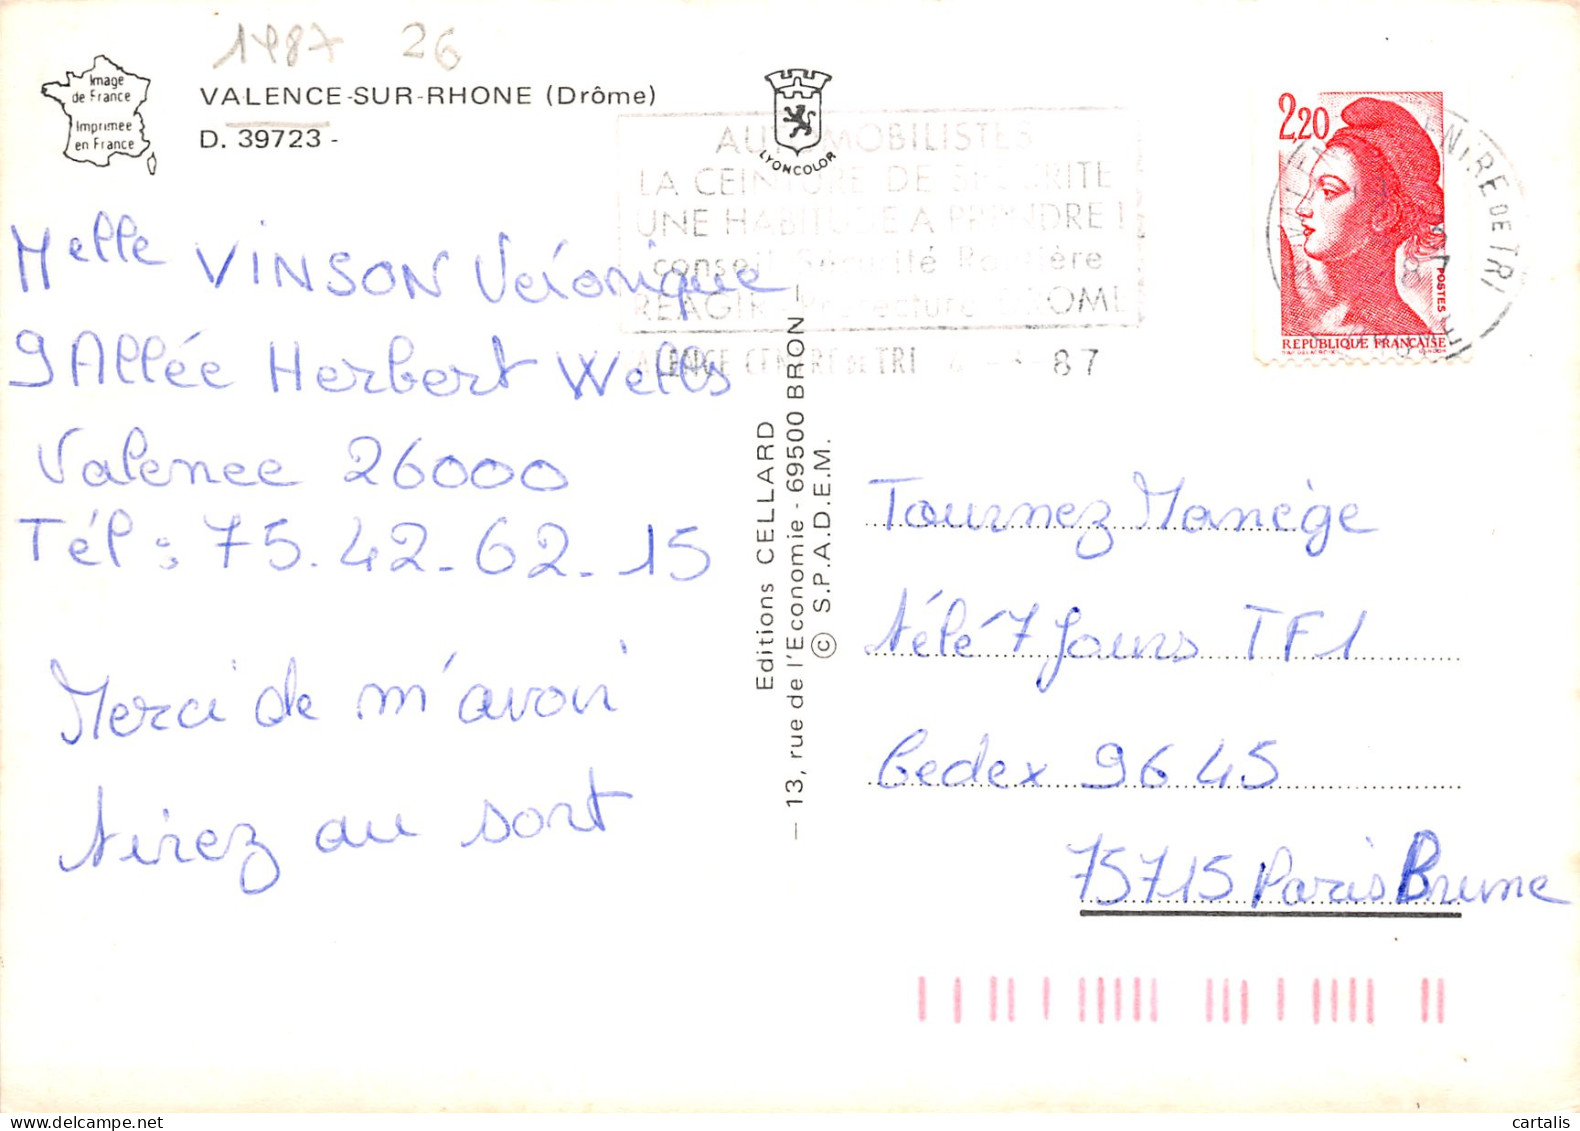 1987 26
Image
de France
Imprimee
en France
VALENCE-SUR-RHONE (Drôme)
D. 39723 -
LYONCOLOR
AUTOMOBILISTES
LA CEINTURE DE SECURITE
UNE HABITUDE A PRENDRE !
conseil Sécurité Routière
REAGIR Préfecture DROME
VALENCE CENTRE DE TRI 87
2,20
POSTES
REPUBLIQUE FRANÇAISE
CENTRE DE TRI
Melle VINSON Véronique
9 Allée Herbert Wells
Valence 26000
Tél : 75.42-62-15
Merci de m'avoir
tirez au sort
Editions CELLARD
— 13, rue de l'Economie - 69500 BRON —
© S.P.A.D.E.M.
Tournez Manège
télé 7 Jours TF1
Cedex 9645
75715 Paris Brune
cartalis